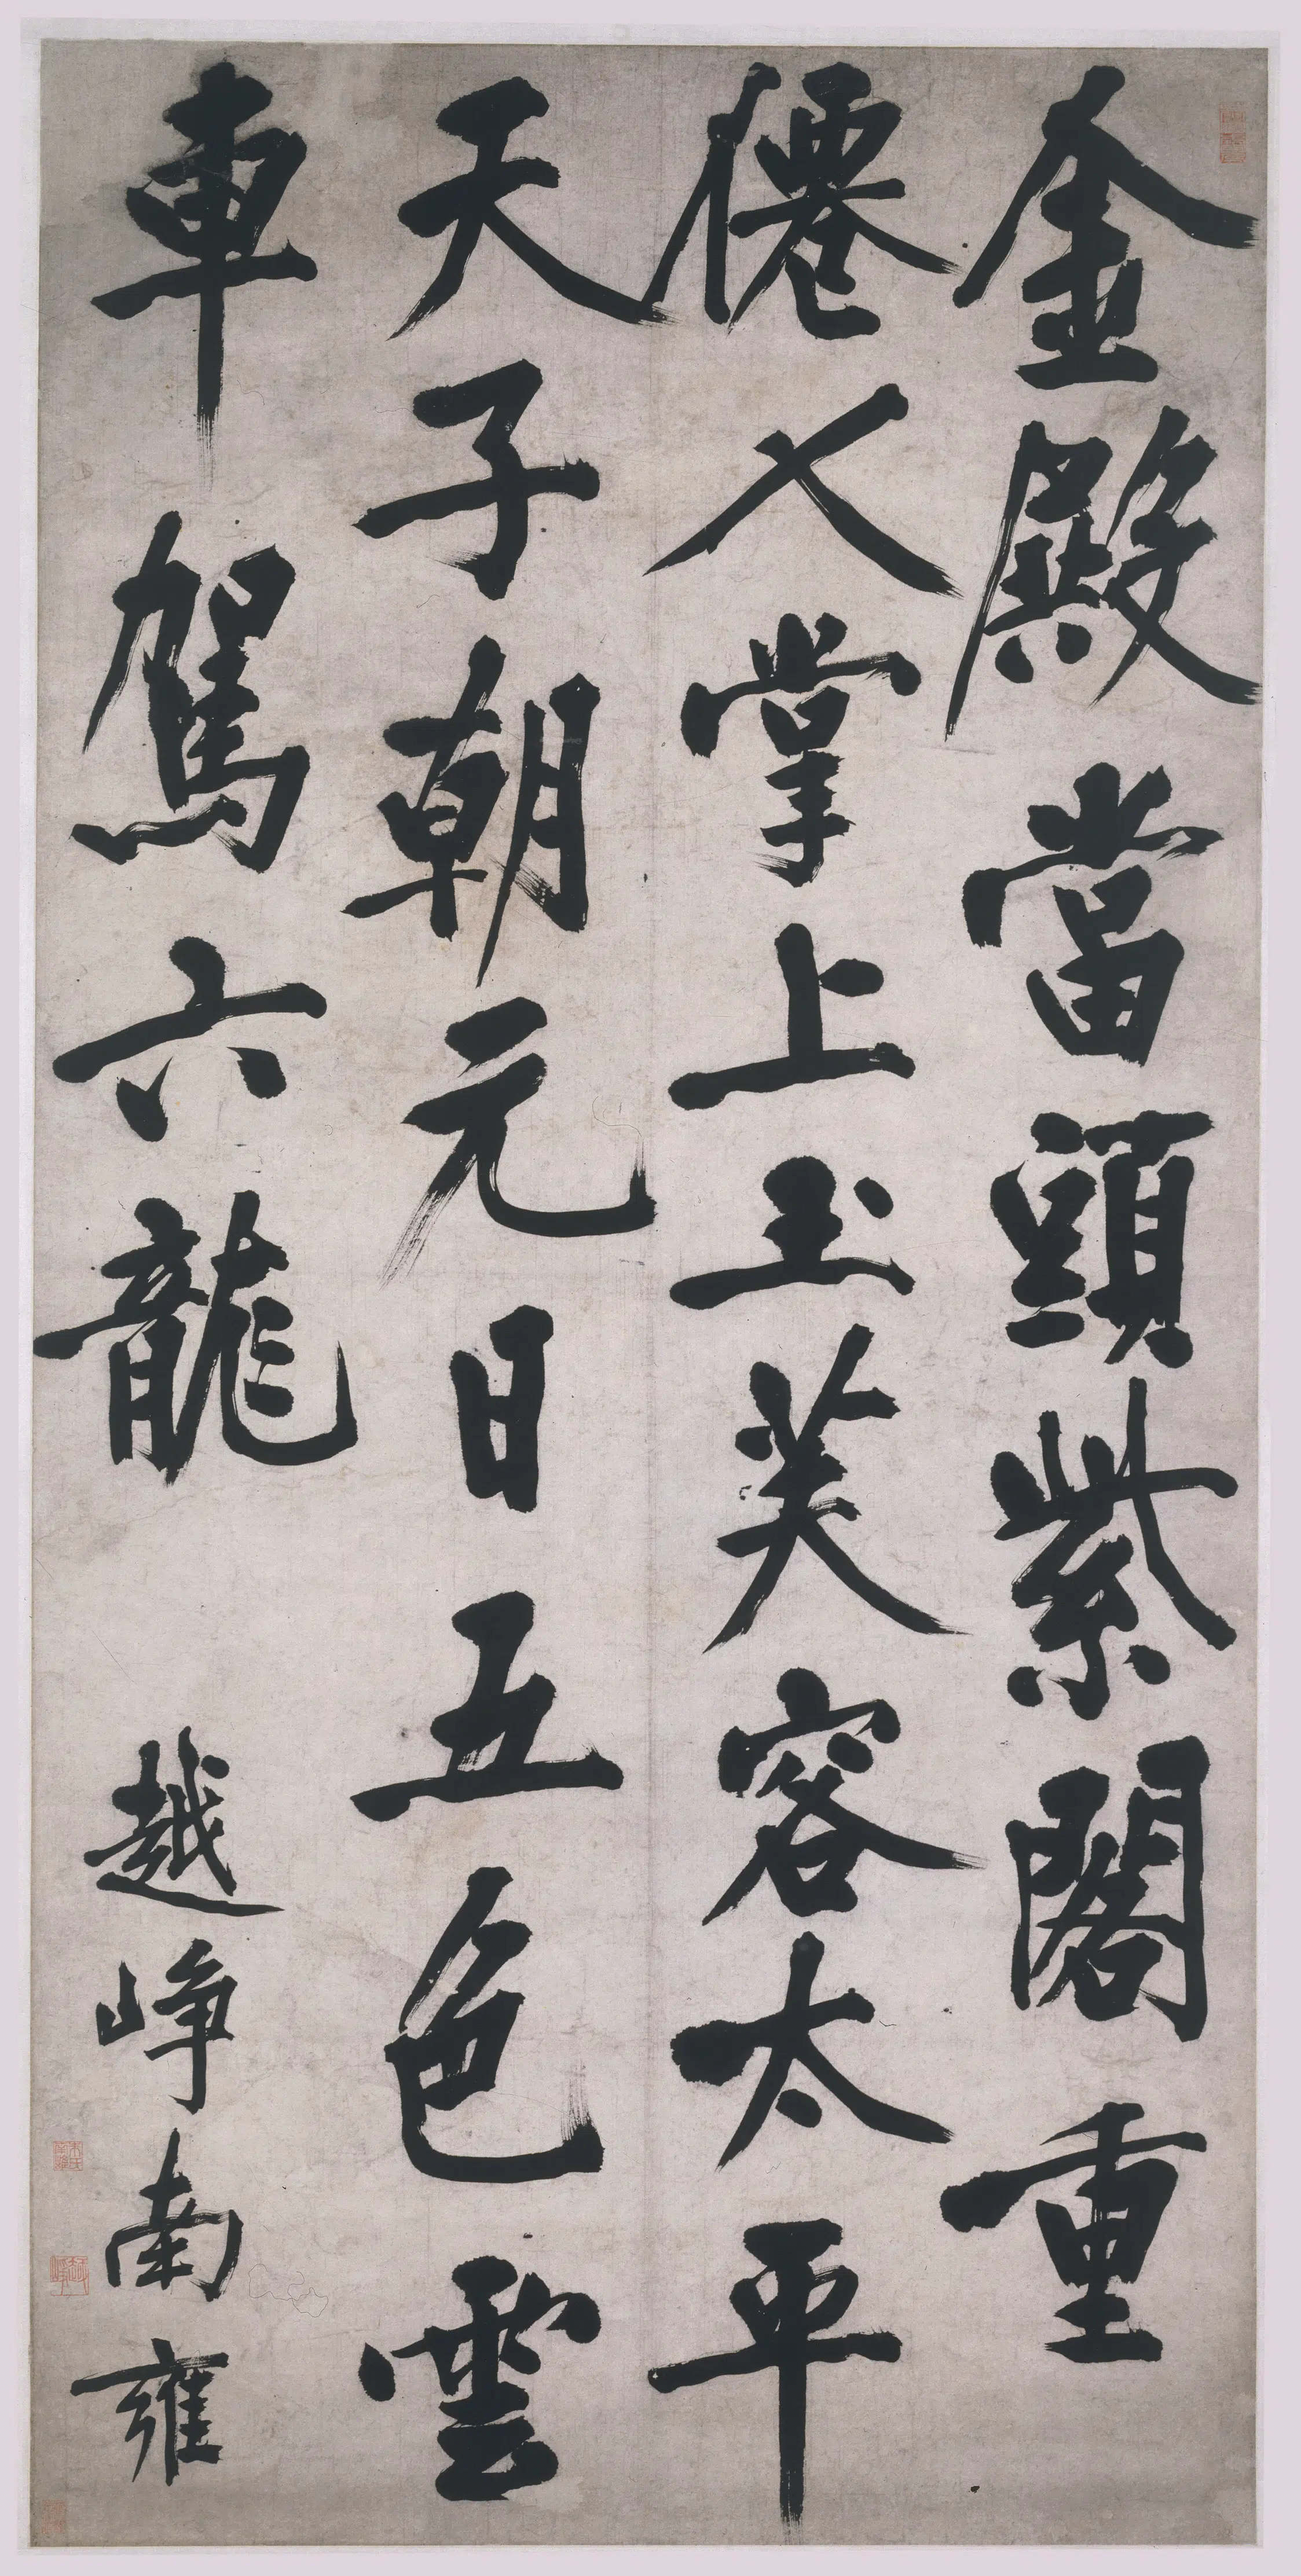 金殿當頭紫閣重
僊人掌上玉芙容太平
天子朝元日五色雲
車駕六龍
越崢南雍